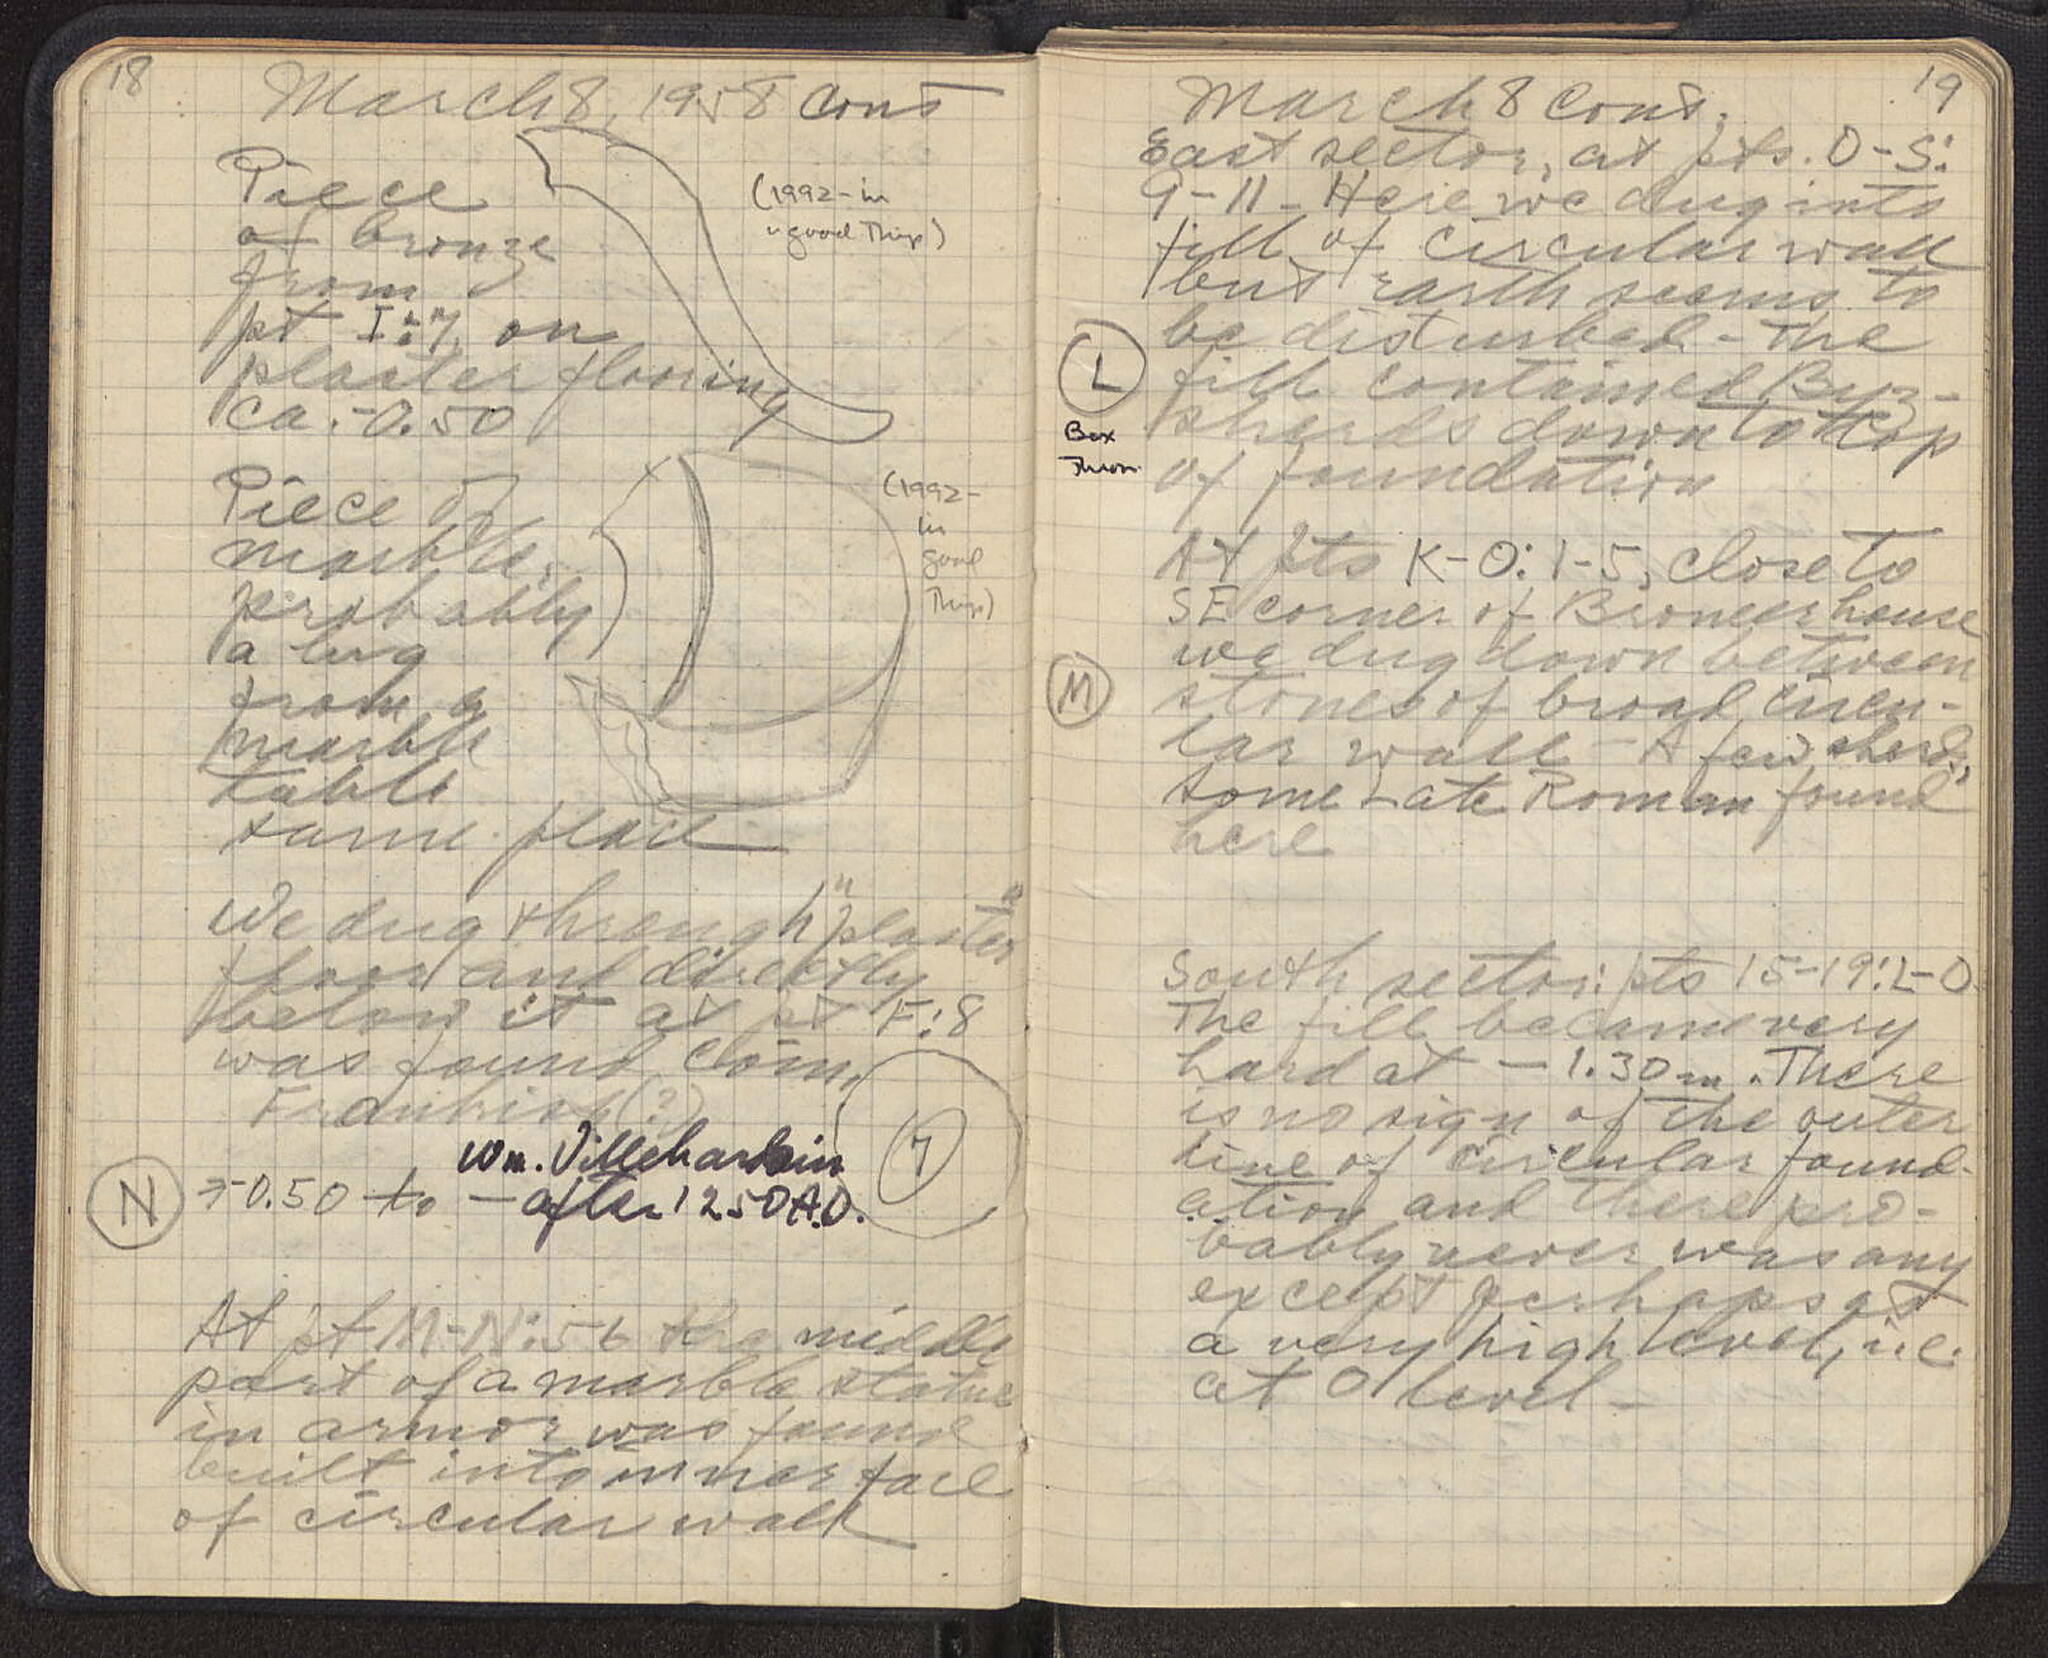 18
March 8, 1958 Cont
Piece
of bronze
from
pt I:7, on
plaster flooring
ca. -0.50
(1992- in
"good Things)
Piece of
marble,
probably
a lug
from a
marble
table
same place
(1992-
in
good
Things)
We dug through "plaster"
floor and directly
below it at pt F:8
was found Coin,
Frankish (?)
7
Wm. Villehardouin
N
-0.50 to — after 1250 A.D.
At pt M-N:5-6 the middle
part of a marble statue
in armor was found
built into inner face
of circular wall
19
March 8 Cont.
East sector, at pts. O-S:
9-11 - Here we dug into
fill of circular wall
but earth seems to
be disturbed - The
L
fill contained Byz-
sherds down to top
Box
Thrown
of foundation
At pts K-O:1-5, close to
SE corner of Broneer house
we dug down between
M
stones of broad circu-
lar wall - A few sherds,
some Late Roman found
here
South sector: pts 15-19:L-O
The fill became very
hard at -1.30 m. There
is no sign of the outer
line of circular found-
ation and there pro-
bably never was any
except perhaps at
a very high level, i.e.
at O level -